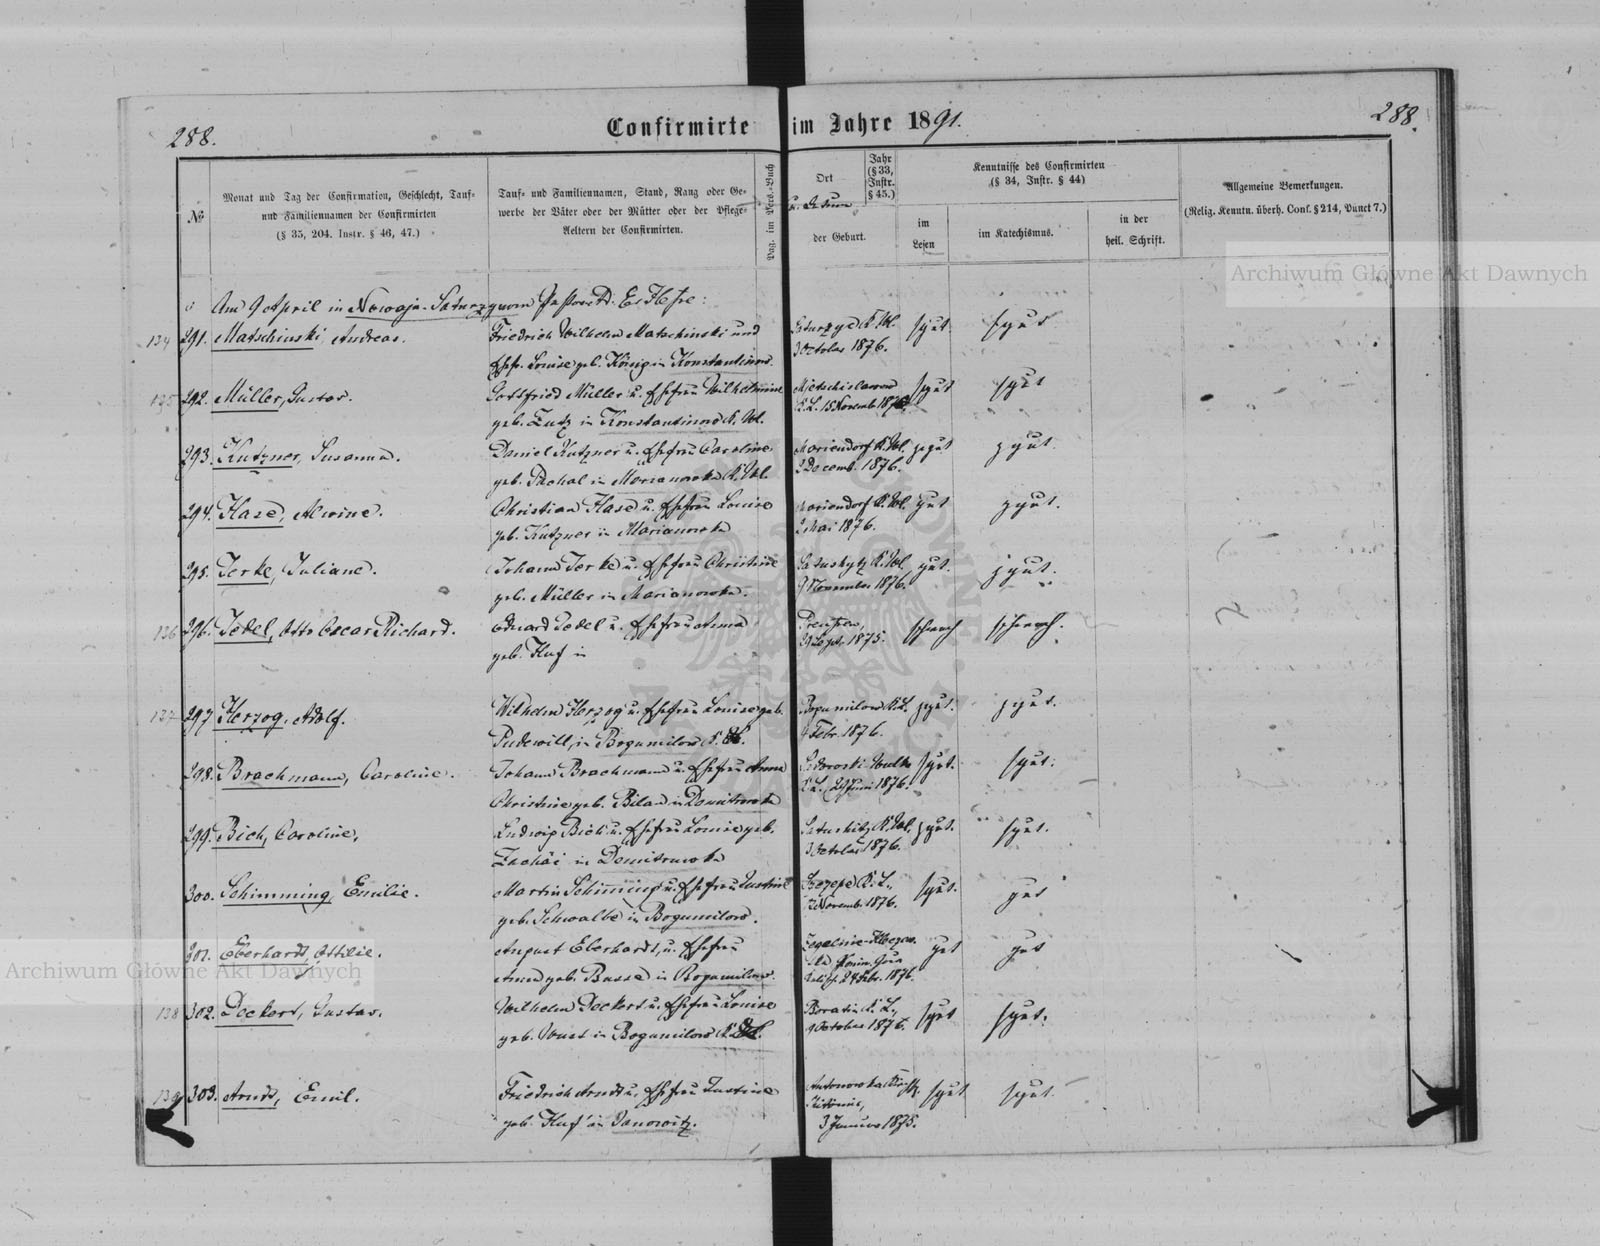 288.
Confirmirte im Jahre 1891.
288.
№
Monat und Tag der Confirmation, Geschlecht, Tauf-
und Familiennamen der Confirmirten
(§ 35, 204. Instr. § 46, 47.)
Tauf- und Familiennamen, Stand, Rang oder Ge-
werbe der Väter oder der Mütter oder der Pflege-
Aeltern der Confirmirten.
Pag. im Pers.-Buch
Ort
u. Datum
der Geburt.
Jahr
(§ 33,
Instr.
§ 45.)
Kenntnisse des Confirmirten
(§ 34, Instr. § 44)
im
Lesen
im Katechismus.
in der
heil. Schrift.
Allgemeine Bemerkungen.
(Relig. Kenntn. überh. Conf. § 214, Punct 7.)
Am 9 April in Nowaja-
134 291. Matschinski, Andreas. Friedrich Wilhelm Matschinski und 3 October 1876. gut gut
Ehefr. Louise geb. König in Konstantinow.
135 292. Müller, Gustav. Gottfried Müller u. Ehefrau Wilhelmine K. L. 15 Novemb. 1876. gut gut
geb. Lutz in Konstantinow K. Wol.
293. Kutzner, Susanna. Daniel Kutzner u. Ehefrau Caroline Mariendorf K. Wol. 2 Decemb. 1876. gut gut
geb. Pachal in Marianowka K. Wol.
294. Hase, Alwine. Christian Hase u. Ehefrau Louise Mariendorf K. Wol. 2 Mai 1876. gut gut.
geb. Kutzner in Marianowka
295. Jerke, Juliane. Johann Jerke u. Ehefrau Christine K. Wol. 9 November 1876. gut. gut.
geb. Müller in Marianowka.
136 296. Jedel, Otto Oscar Richard. Eduard Jedel u. Ehefrau Anna Preußen, 29 Sept. 1875. schwach schwach.
geb. Huf in
137 297 Herzog, Adolf. Wilhelm Herzog u. Ehefrau Louise geb. Bogumilow K. L. 4 Febr. 1876. gut. gut.
Pudewill, in Bogumilow K.
298. Brachmann, Caroline. Johann Brachmann u. Ehefrau Anna K. L. 29 Juni 1876. gut. gut.
Christine geb. Bilan in Demitrowka
299. Bich, Caroline, Ludwig Bich u. Ehefrau Louise geb. K. Wol. 3 October 1876. gut. gut.
Zachäi in Demitrowka
300. Schimming, Emilie. Martin Schimming u. Ehefrau Justine K. L., Novemb. 1876. gut. gut
geb. Schwalbe in Bogumilow.
301. Eberhardt, Ottilie. August Eberhardt, u. Ehefrau 24 Febr. 1876. gut gut
Anna geb. Busse in Bogumilow.
138 302. Deckert, Gustav. Wilhelm Deckert u. Ehefrau Louise Boratin K. L., 9 October 1876. gut gut.
geb. Wust in Bogumilow K.
139 303. Arndt, Emil. Friedrich Arndt u. Ehefrau Justine Antonowka 3 Januar 1875. gut gut.
geb. Huf in Janowitz.
Archiwum Główne Akt Dawnych
Archiwum Główne Akt Dawnych